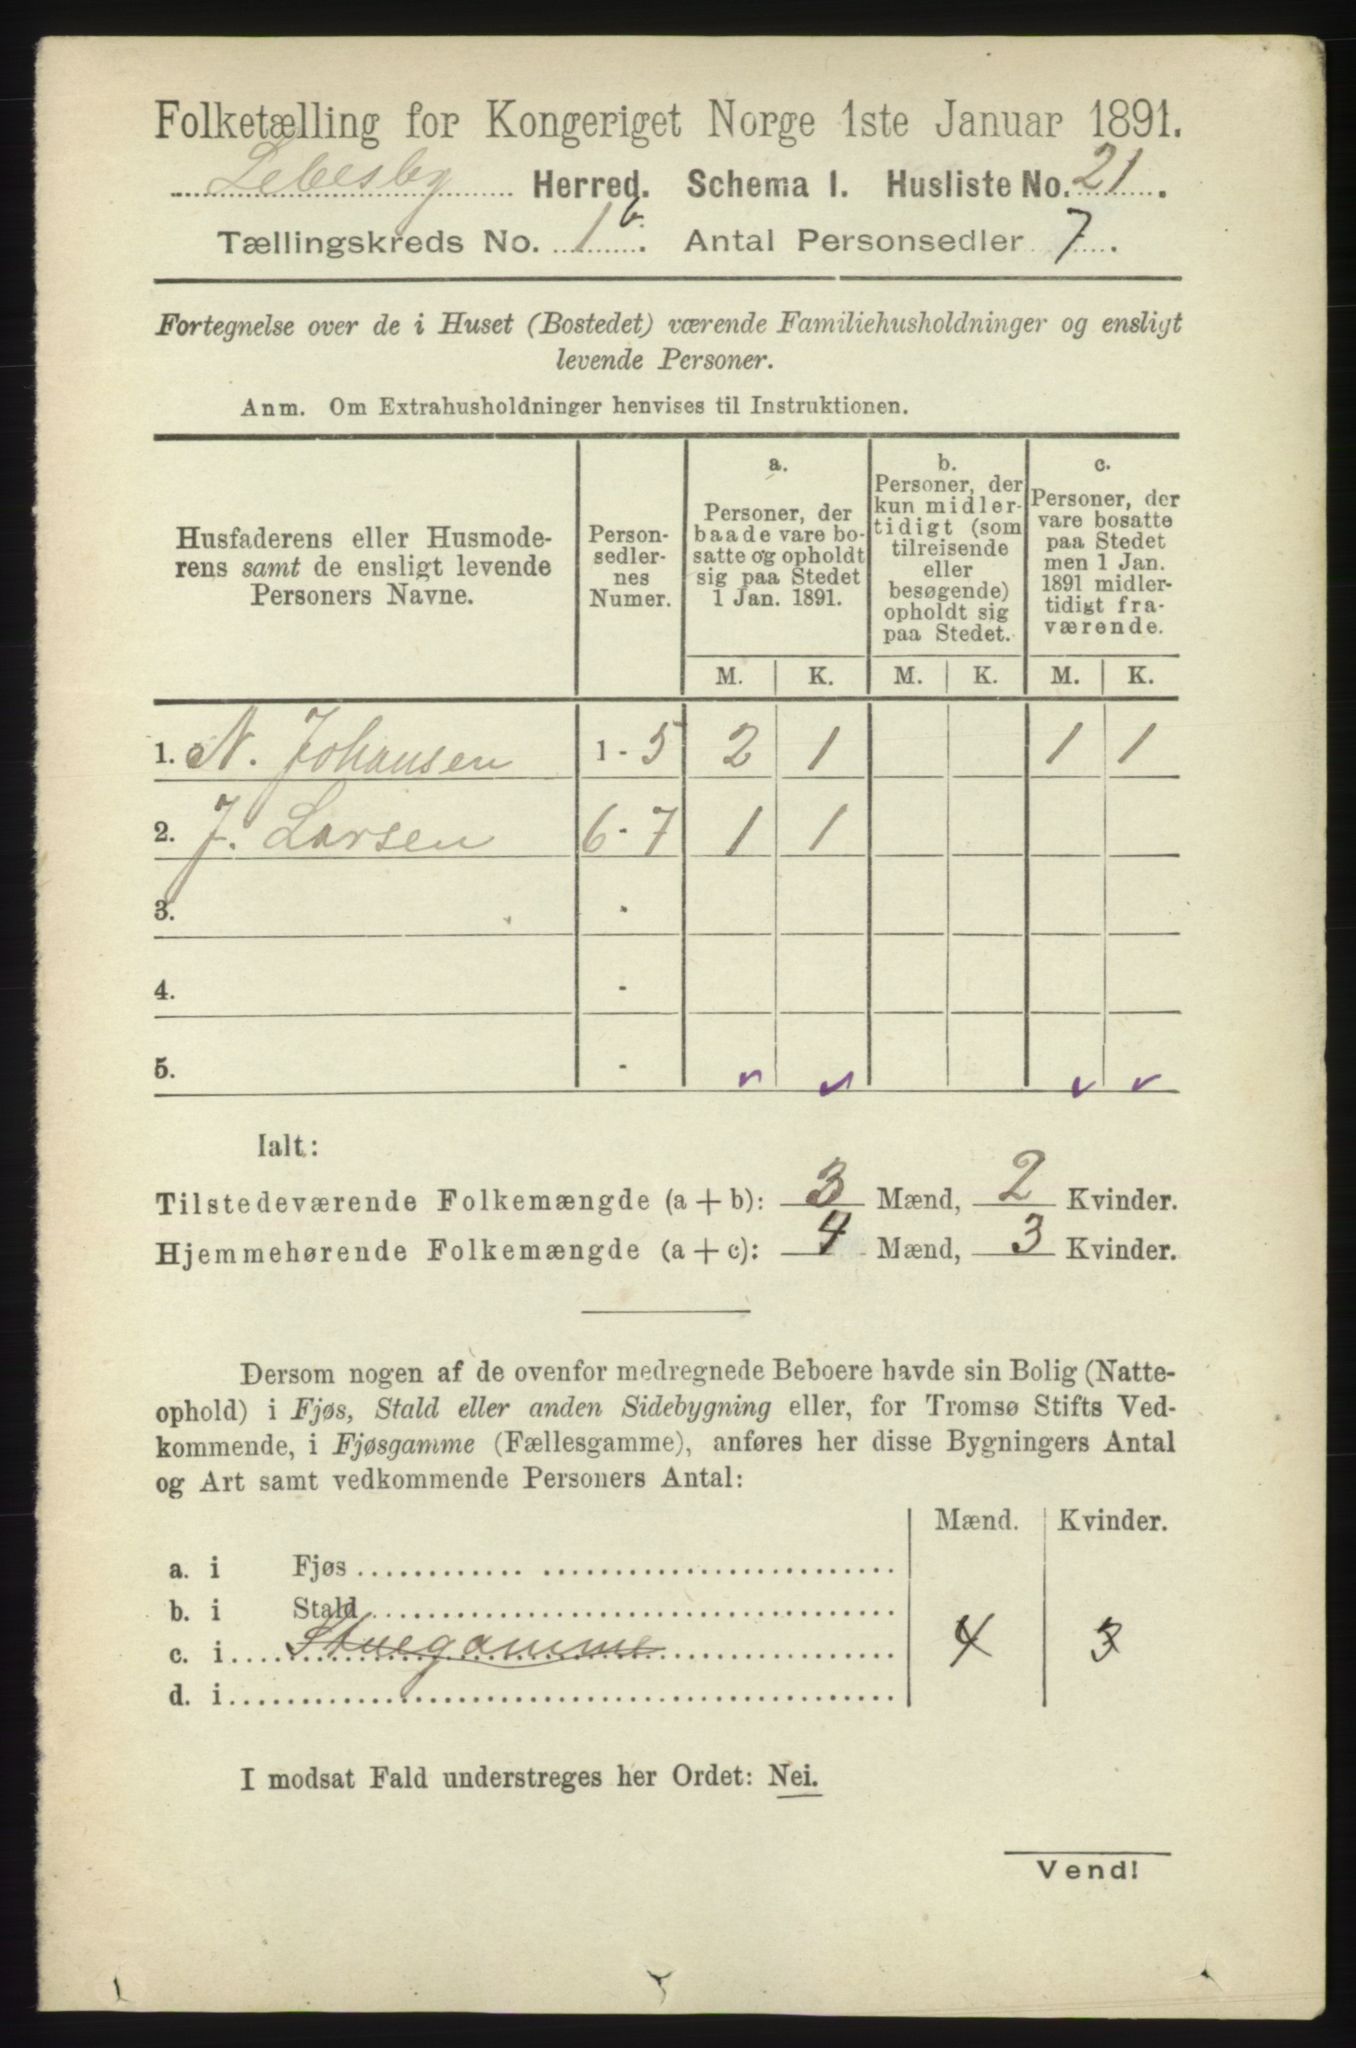 Folketælling for Kongeriget Norge 1ste Januar 1891.
Lebesby Herred. Schema I. Husliste No. 21.
Tællingskreds No. 1 b. Antal Personsedler 7.
Fortegnelse over de i Huset (Bostedet) værende Familiehusholdninger og ensligt
levende Personer.
Anm. Om Extrahusholdninger henvises til Instruktionen.
Husfaderens eller Husmode-
rens samt de ensligt levende
Personers Navne.
Person-
sedler-
nes
Numer.
a.
Personer, der
baade vare bo-
satte og opholdt
sig paa Stedet
1 Jan. 1891.
b.
Personer, der
kun midler-
tidigt (som
tilreisende
eller
besøgende)
opholdt sig
paa Stedet.
c.
Personer, der
vare bosatte
paa Stedet
men 1 Jan.
1891 midler-
tidigt fra-
værende.
M. K. M. K. M. K.
1. N. Johansen 1 - 5 2 1 1 1
2. J. Larsen 6 - 7 1 1
3. -
4. -
5. -
Ialt:
Tilstedeværende Folkemængde (a + b): 3 Mænd, 2 Kvinder.
Hjemmehørende Folkemængde (a + c): 4 Mænd, 3 Kvinder.
Dersom nogen af de ovenfor medregnede Beboere havde sin Bolig (Natte-
ophold) i Fjøs, Stald eller anden Sidebygning eller, for Tromsø Stifts Ved-
kommende, i Fjøsgamme (Fællesgamme), anføres her disse Bygningers Antal
og Art samt vedkommende Personers Antal:
Mænd. Kvinder.
a. i Fjøs
b. i Stald
c. i Stuegamme 4 3
d. i
I modsat Fald understreges her Ordet: Nei.
Vend!